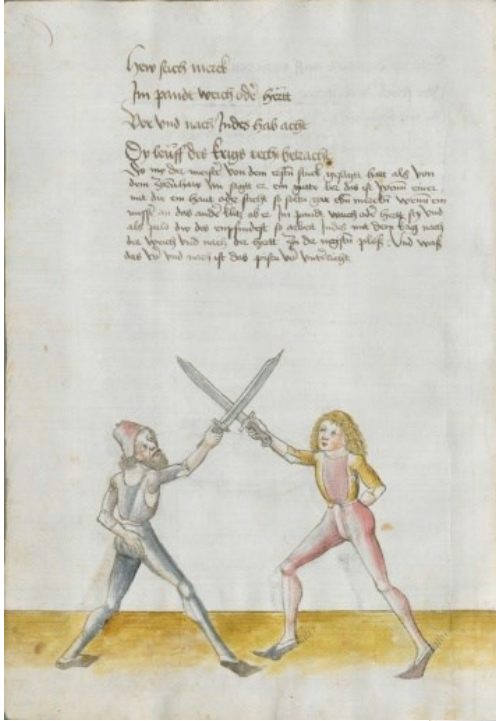 Hew stich merck
Im pandt waich oder hertt
Vor und nach Indes hab acht
Dy leuff des krigs recht betracht
Do mit der maister von dem ersten stuck gesagt hatt als von
dem zornhaw Nu sagt er ein gutte ler das ist wenn einer
mit dir ein haut oder sticht so soltu gar eben mercken wenn ein
messer an das ander klitzt ab er Im pandt waich oder hertt sey und
als pald du das empfindest so arbait Indes mit dem krig nach
der waich und nach der hertt zu der nagsten plos Und was
das vor und nach ist das